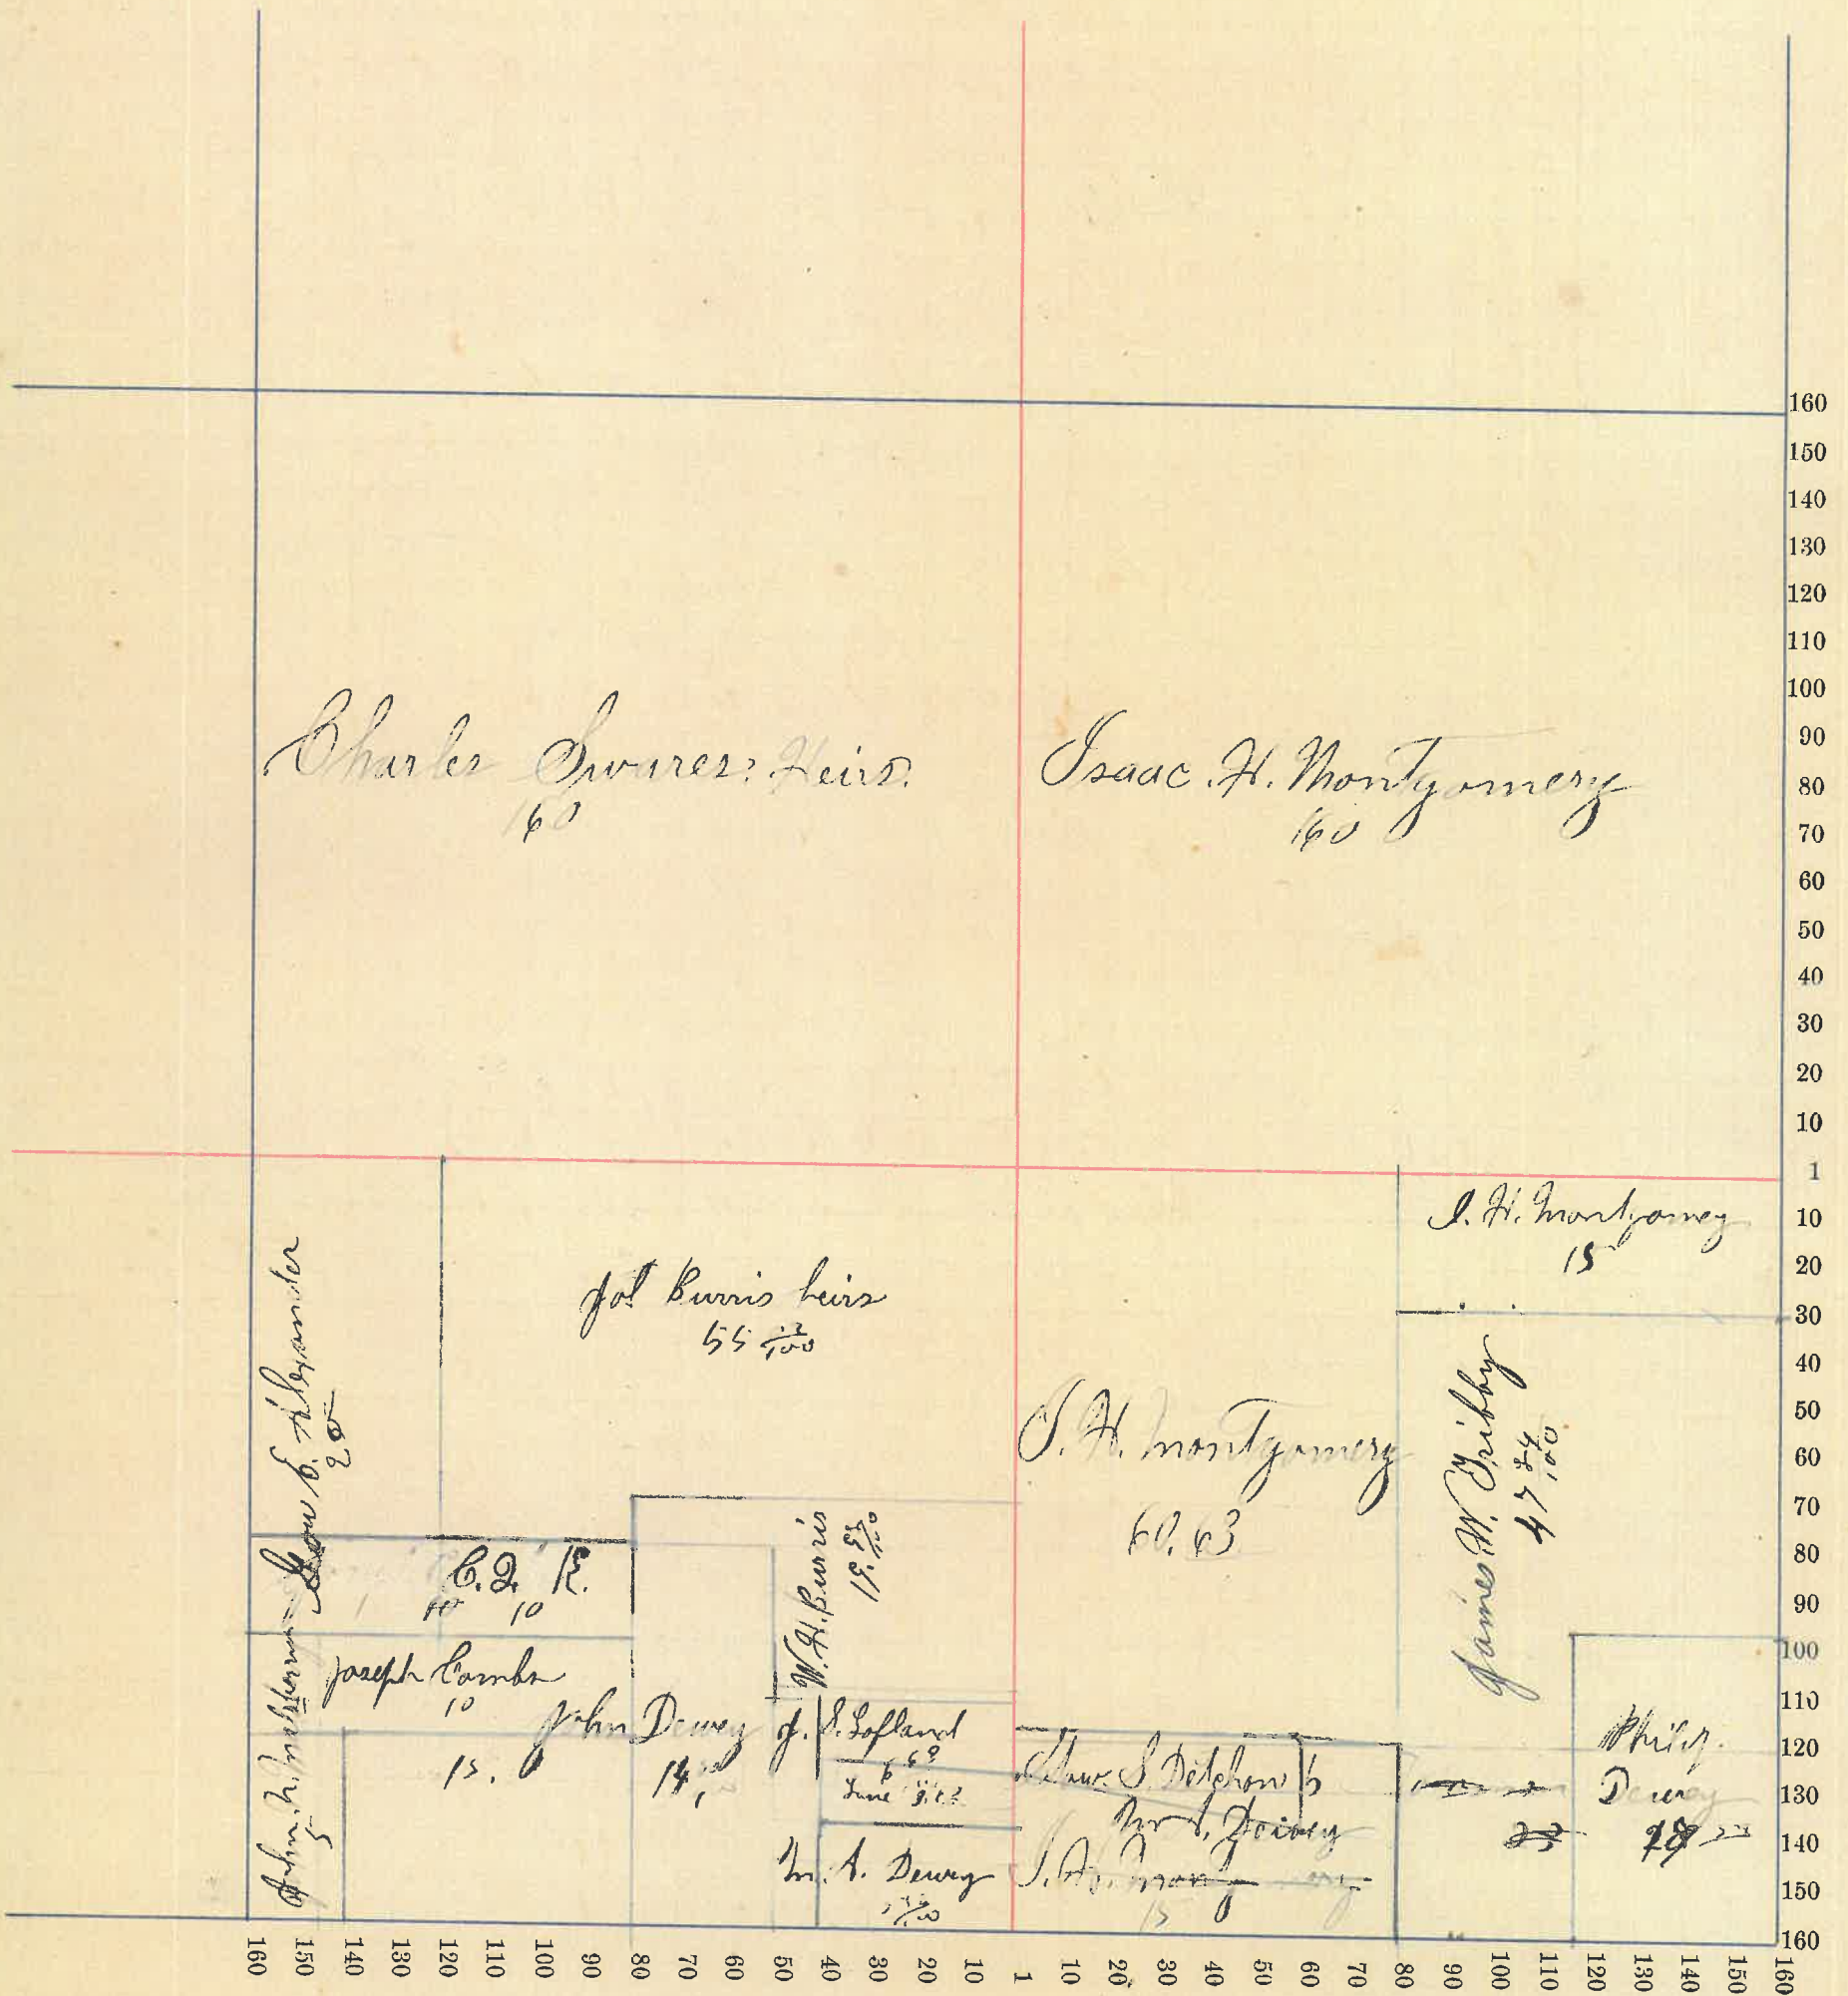 Charles Swares: Heirs.
160
Isaac. H. Montgomery
160
160
150
140
130
120
110
100
90
80
70
60
50
40
30
20
10
1
10
20
30
40
50
60
70
80
90
100
110
120
130
140
150
160
I. H. Montgomery
15
Jas Burris heirs
55 12/100
E. Alexander
20
I. H. Montgomery
60.63
James W. Gribby
47 24/100
W. H. Burris
19.
C. Q. R.
10 10
Joseph Combs
10
John Dewey
15. 14
J. S. Lofland
John. N.
5
S. Detchon
M. A. Dewey
M. A. Dewey
I. H.
15
Philip.
Dewey
23
160 150 140 130 120 110 100 90 80 70 60 50 40 30 20 10 1 10 20 30 40 50 60 70 80 90 100 110 120 130 140 150 160